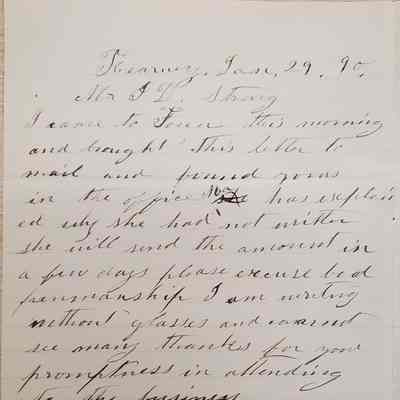 Kearney, Jan, 29, 90,
Mr I D. Strong
I came to Town this morning
and bought this letter to
mail and found yours
in the office has explain
ed why she had not written
she will send the amount in
a few days please excuse bad
penmanship I am writing
without glasses and cannot
see many thanks for your
promptness in attending
to the business